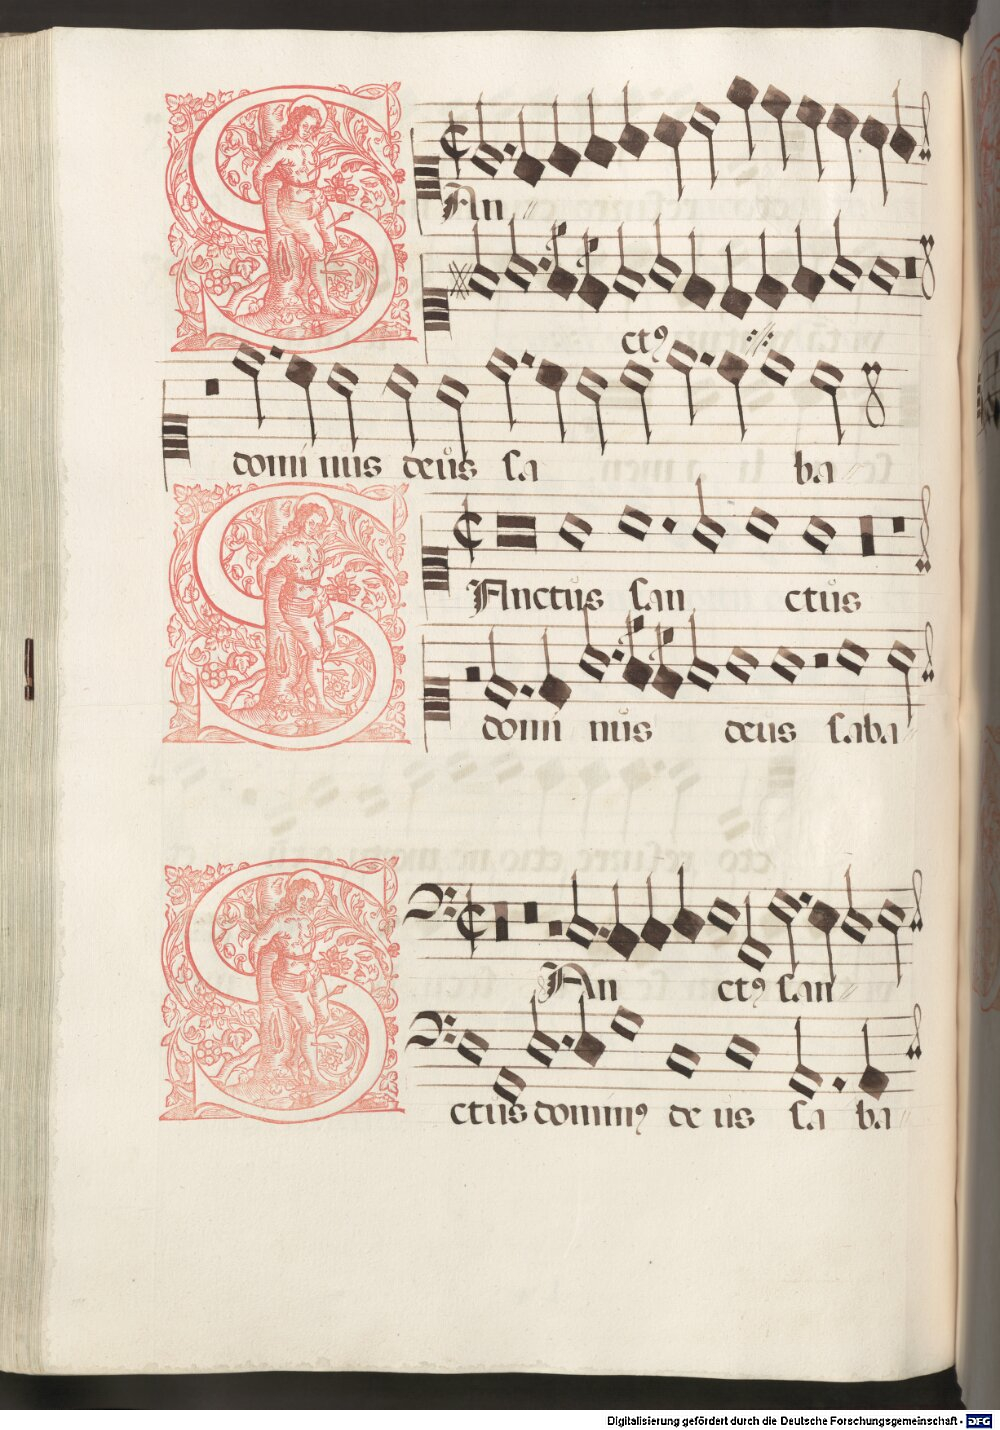 SAn
ctꝰ
dominus deus sa ba
SAnctus san ctus
domi nus deus saba
SAn ctꝰ san
ctus dominꝰ de us sa ba
Digitalisierung gefördert durch die Deutsche Forschungsgemeinschaft - DFG